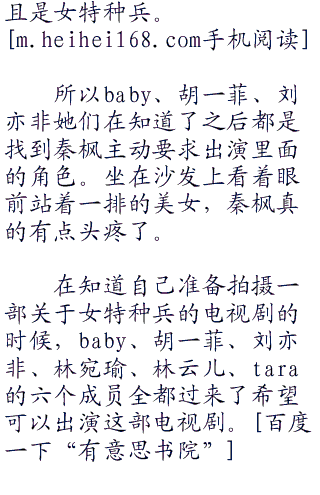 且是女特种兵。
[m.heihei168.com手机阅读]
所以baby、胡一菲、刘
亦非她们在知道了之后都是
找到秦枫主动要求出演里面
的角色。坐在沙发上看着眼
前站着一排的美女，秦枫真
的有点头疼了。
在知道自己准备拍摄一
部关于女特种兵的电视剧的
时候，baby、胡一菲、刘亦
非、林宛瑜、林云儿、tara
的六个成员全都过来了希望
可以出演这部电视剧。[百度
一下“有意思书院”]